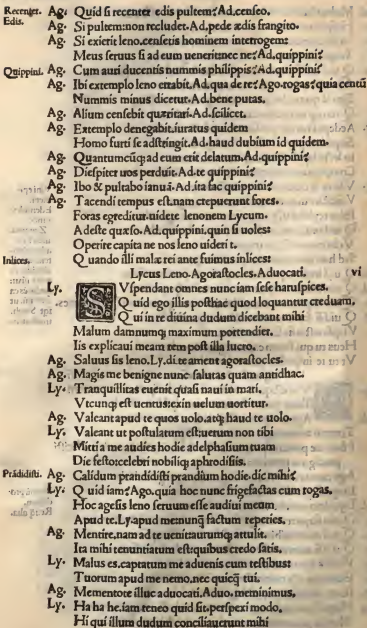 Recenter. Ag. Quid si recenter edis pultem? Ad. censeo.
Edis. Ag. Si pultem: non recludet. Ad. pede ædis frangito.
Ag. Si exierit leno. censetis hominem interrogem:
Meus seruus si ad eum uenerit nec ne? Ad. quippini?
Quippini. Ag. Cum auri ducentis nummis philippis? Ad. quippini?
Ag. Ibi extemplo leno errabit. Ad. qua de re? Ago. rogas? quia centũ
Nummis minus dicetur. Ad. bene putas.
Ag. Alium censebit quæritari. Ad. scilicet.
Ag. Extemplo denegabit. iuratus quidem
Homo furti se adstringit. Ad. haud dubium id quidem.
Ag. Quantumcũq; ad eum erit delatum. Ad. quippini?
Ag. Diespiter uos perduit. Ad. te quippini?
Ag. Ibo & pultabo ianuã. Ad. ita fac quippini?
Ag. Tacendi tempus est. nam crepuerunt fores.
Foras egreditur. uidete lenonem Lycum.
Adeste quæso. Ad. quippini. quin si uoles:
Operire capita ne nos leno uideri t.
Inlices. Quando illi malæ rei ante fuimus inlices:
Lycus Leno. Agorastocles. Aduocati. vi
Ly. SVspendant omnes nunciam sese haruspices.
Quid ego illis posthac quod loquantur creduam.
Qui in re diuina dudum dicebant mihi
Malum damnumq; maximum portendier.
Iis explicaui meam rem post illa lucro.
Ag. Saluus sis leno. Ly. di te ament agorastocles.
Ag. Magis me benigne nunc salutas quam antidhac.
Ly. Tranquillitas euenit quasi naui in mari.
Vtcunq; est uentus: exin uelum uortitur.
Ag. Valeant apud te quos uolo. atq; haud te uolo.
Ly. Valent ut postulatum est: uerum non tibi
Ag. Mitti a me audies hodie adelphasium tuam
Die festo: celebri nobiliq; aphrodisiis.
Prãdidisti. Ag. Calidum prandidisti prandium hodie. dic mihi?
Ly. Quid iam? Ago. quia hoc nunc frigefactas cum rogas.
Ag. Hoc age sis leno seruum esse audiui meum
Apud te. Ly. apud me? nunq̃ factum reperies.
Ag. Mentire. nam ad te uenit aurumq; attulit.
Ita mihi renuntiatum est: quibus credo satis.
Ly. Malus es. captatum me aduenis cum testibus:
Tuorum apud me nemo. nec quicq̃ tui.
Ag. Mementote illuc aduocati. Aduo. meminimus.
Ly. Ha ha he. iam teneo quid sit. perspexi modo.
Hi qui illum dudum conciliauerunt mihi